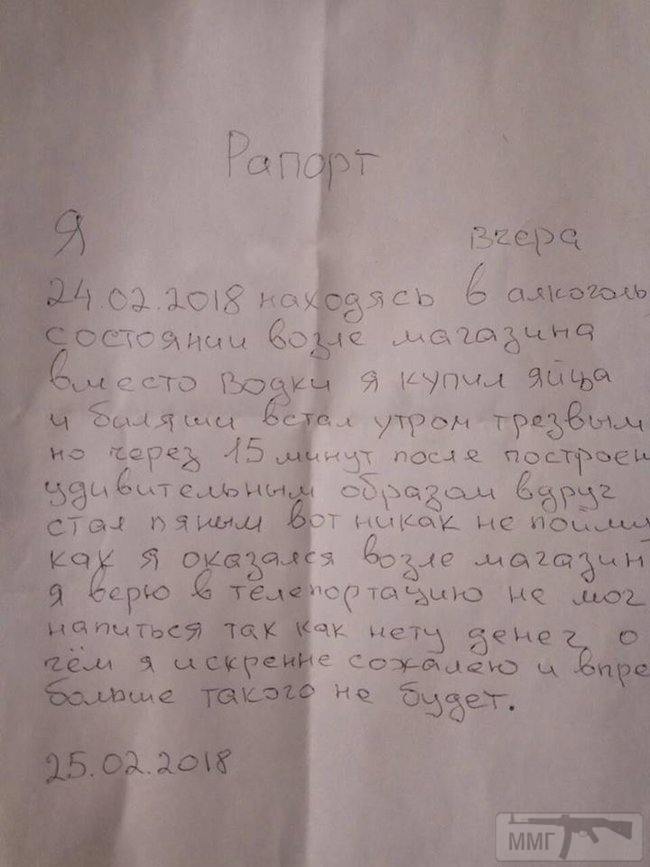 Рапорт
Я вчера
24.02.2018 находясь в алкоголь
состоянии возле магазина
вместо водки я купил яйца
и биляши встал утром трезвым
но через 15 минут после построен
удивительным образом вдруг
стал пяным вот никак не пойму
как я оказался возле магазин
я верю в телепортацию не мог
напиться так как нету денег о
чём я искренне сожалею и впре
больше такого не будет.
25.02.2018
ММГ